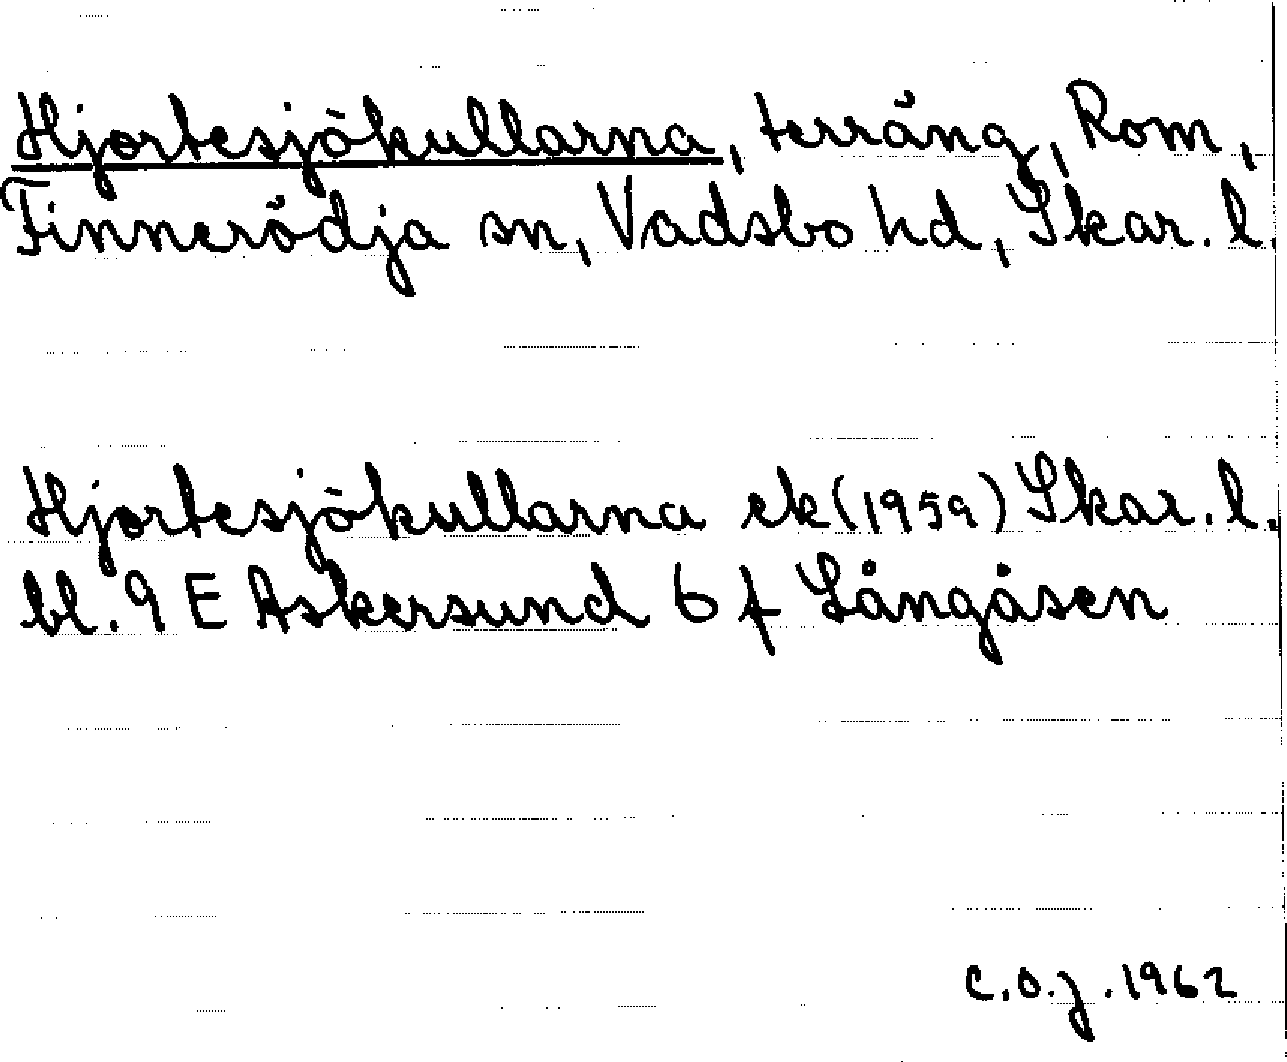 Hjortesjökullarna, terräng, Rom,
Finnerödja sn, Vadsbo hd, Skar. l.
Hjortesjökullarna ek (1959) Skar. l.
bl. 9 E Askersund 6 f Långåsen
C.O.J. 1962